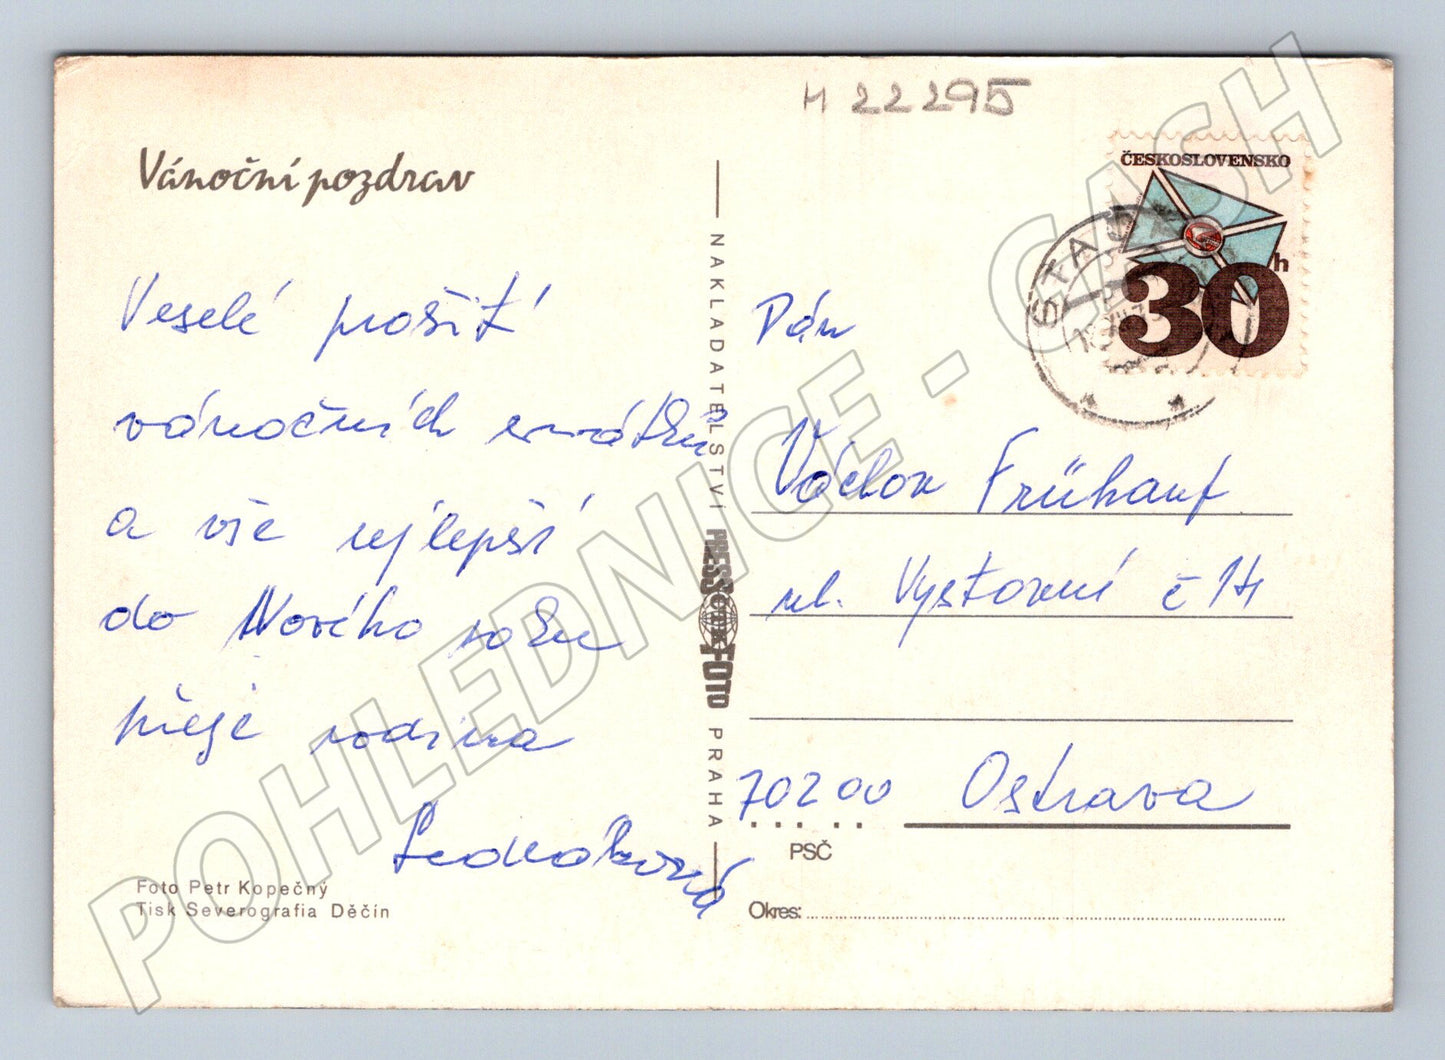 H 22295
Vánoční pozdrav
ČESKOSLOVENSKO
30 h
Veselé prožití
vánočních svátků
a vše nejlepší
do Nového roku
přeje rodina
Pán
Václav Frühauf
ul. Výstavní č 14
70200 Ostrava
PSČ
Okres:
Foto Petr Kopečný
Tisk Severografia Děčín
NAKLADATELSTVÍ PRESSFOTO PRAHA
POHLEDNICE - CASH